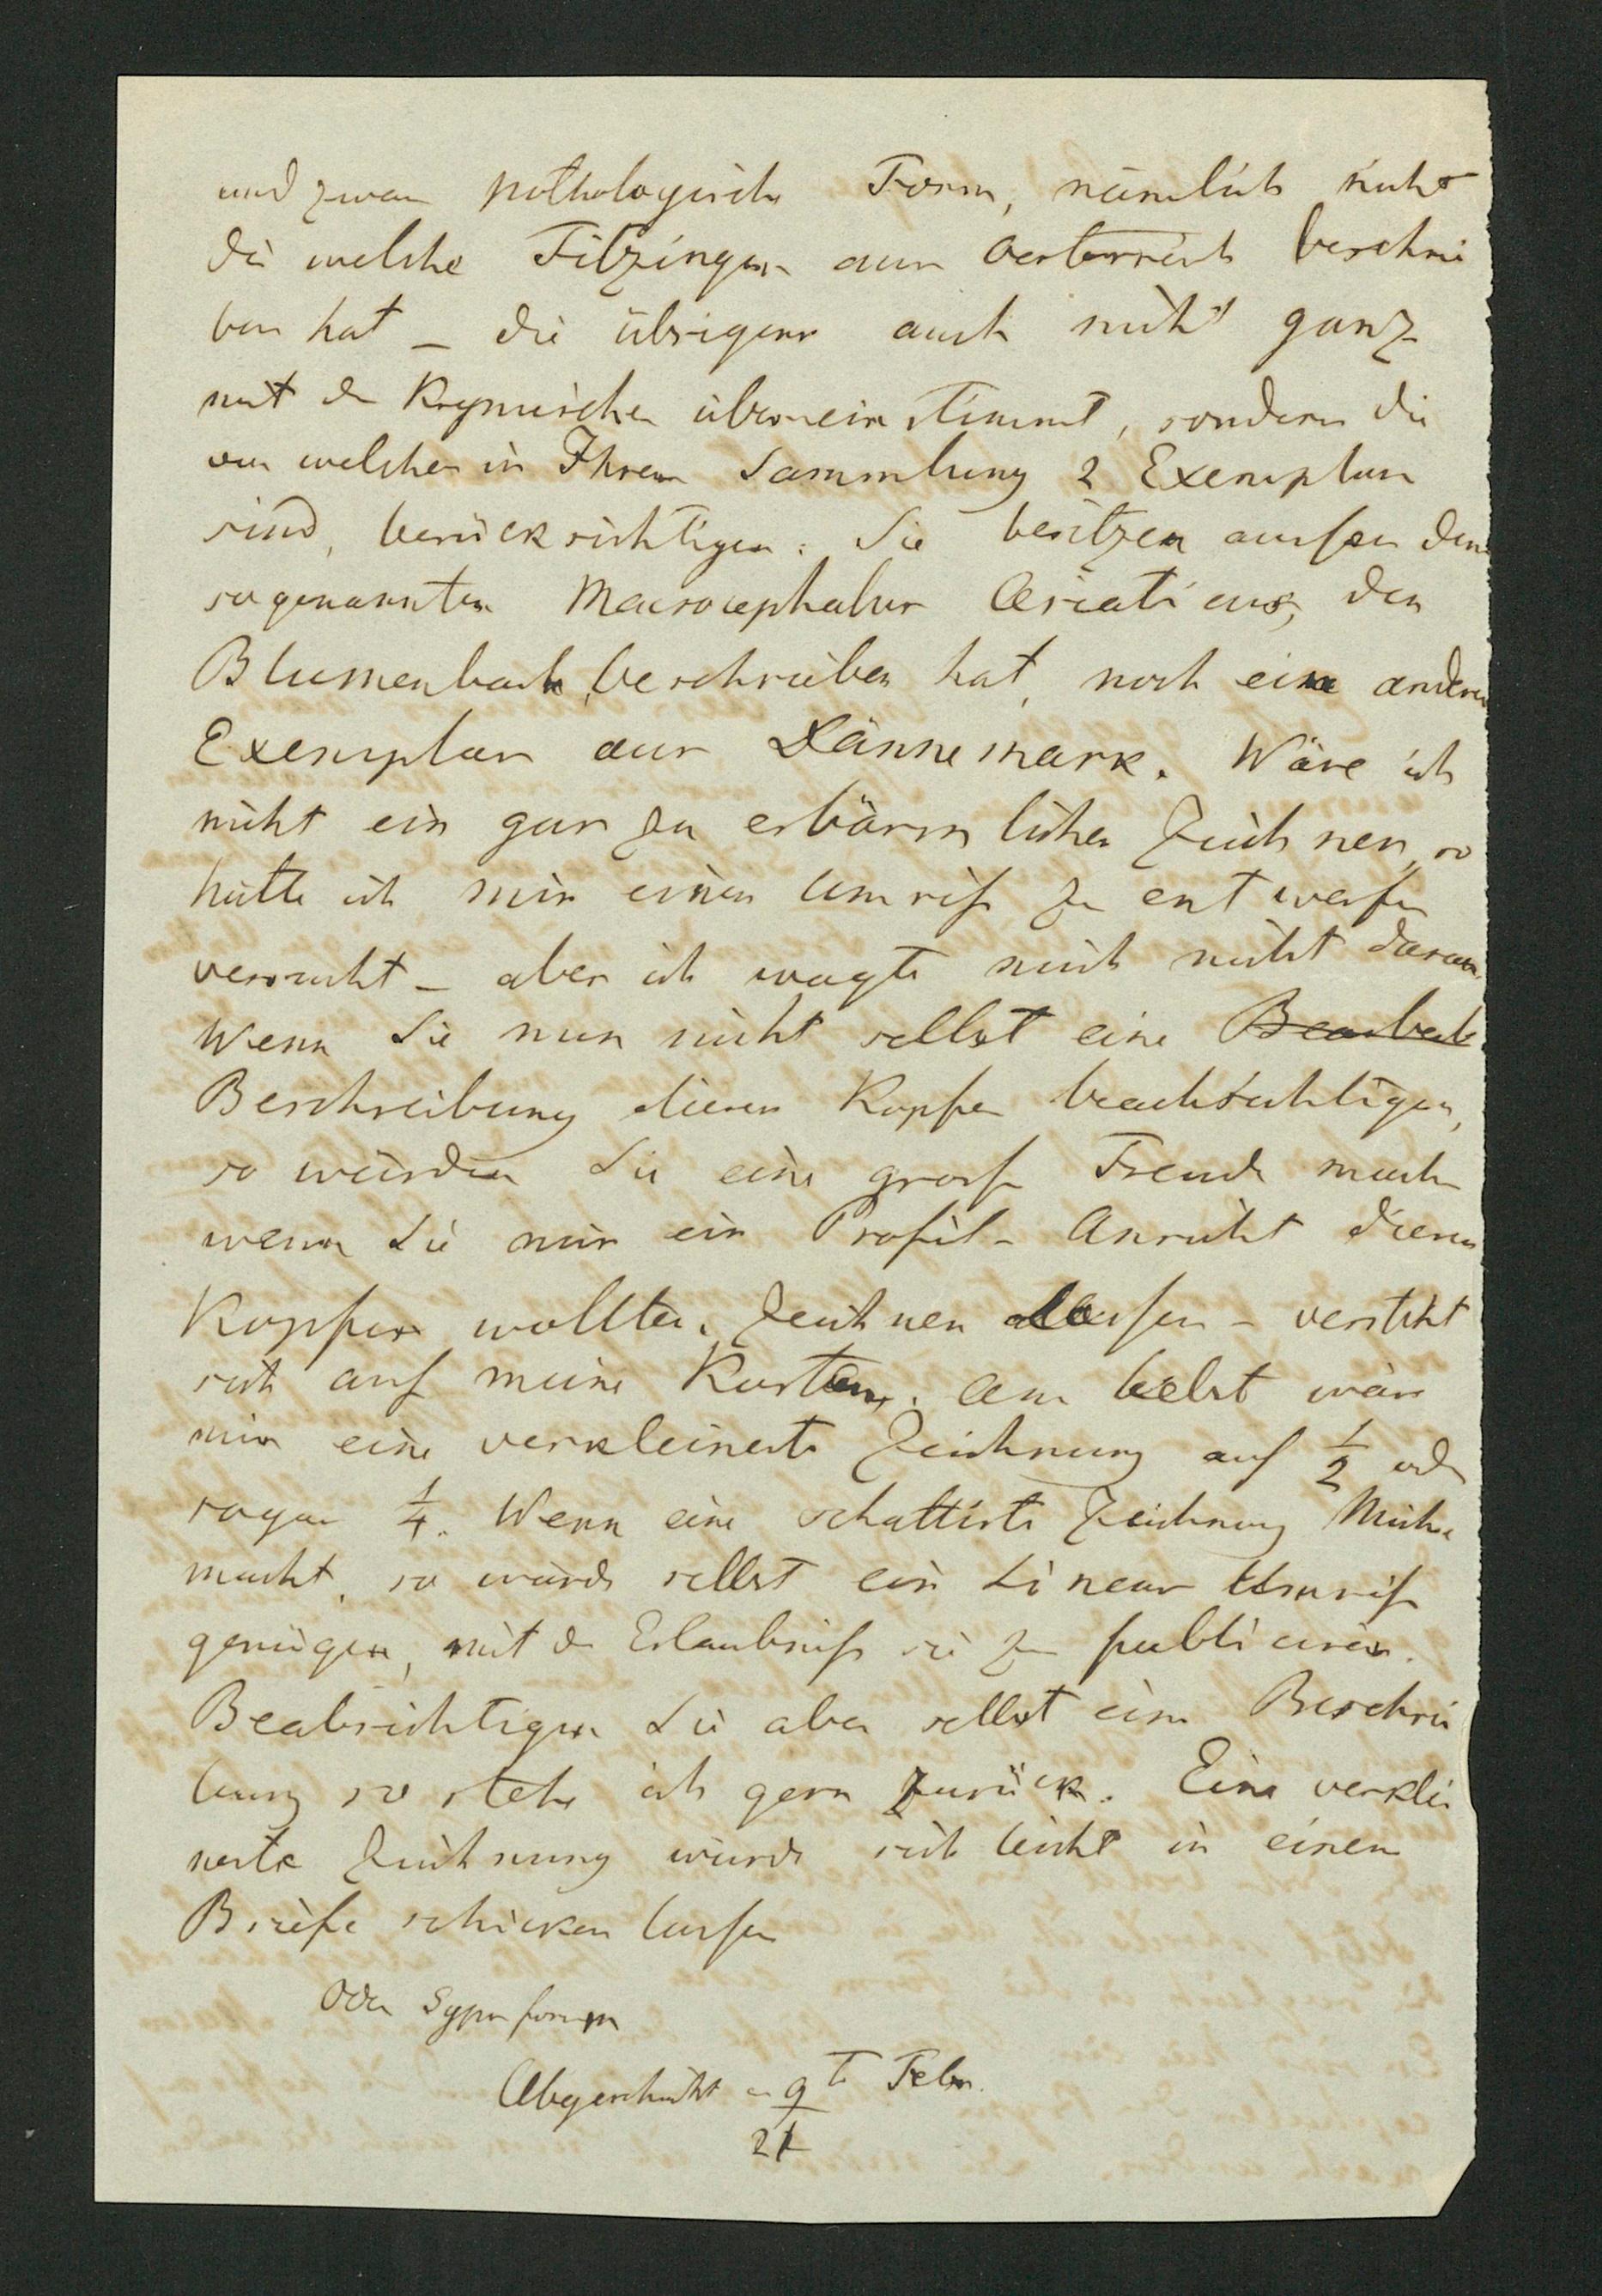 und zwar pathologische Form, nämlich nicht
die welche Fitzinger aus Oesterreich beschrie
ben hat _ die übrigens auch nicht ganz
mit der Krymischen übereinstimmt, sondern die
von welcher in Ihrer Sammlung 2 Exemplare
sind, berücksichtigen. Sie besitzen ausser dem
sogenannten Macrocephalus Asiaticus, den
Blumenbach beschrieben hat, noch ein anderes
Exemplar aus Dännemark. Wäre ich
nicht ein gar zu erbärmlicher Zeichner, so
hätte ich mir einen Umriss zu entwerfen
versucht _ aber ich wagte mich nicht daran.
Wenn Sie nun nicht selbst eine Bearbeit
Beschreibung dieses Kopfes beabsichtigen,
so würden Sie eine grosse Freude machen
wenn Sie mir ein Profil-Ansicht dieses
Kopfes wollten zeichnen lassen _ versteht
sich auf meine Kosten. Am liebst wäre
mir eine verkleinerte Zeichnung auf 1/2 oder
sogar 1/4. Wenn eine schattirte Zeichnung Mühe
macht, so würde selbst ein Linear Umriss
genügen, mit der Erlaubniss sie zu publiciren.
Beabsichtigen Sie aber selbst eine Beschrei
bung so stehe ich gern zurück. Eine verklei
nerte Zeichnung würde sich leicht in einem
Briefe schicken lassen
oder Gypsformen
Abgeschickt 9te Febr.
21